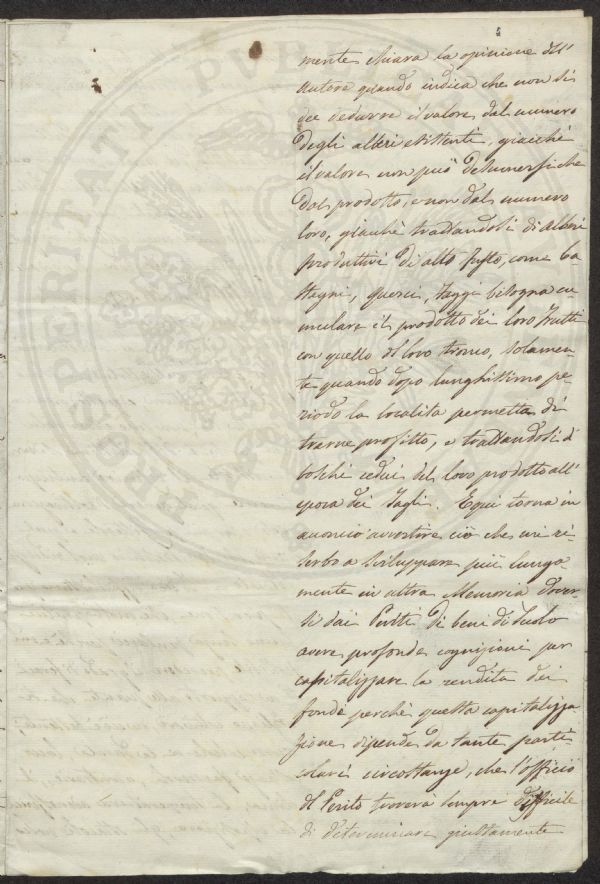 mente chiara la opinione dell'
Autore quando indica che non si
dee dedurre il valore dal numero
degli alberi esistenti, giacchè
il valore non può desumersi che
dal prodotto, e non dal numero
loro, giacchè trattandosi di alberi
produttivi di alto fusto, come Ca-
stagni, Querci, Faggi bisogna cu-
mulare il prodotto dei loro frutti
con quello del loro tronco, solamen-
te quando dopo lunghissimo pe-
riodo la località permetta di
trarne profitto, e trattandosi di
boschi cedui del loro prodotto all'
epoca dei Tagli. E qui torna in
acconcio avvertire ciò che mi ri-
serbo a sviluppare più lunga-
mente in altra Memoria dover-
si dai Periti di beni di suolo
avere profonde cognizioni per
capitalizzare la rendita dei
fondi perchè questa capitalizza-
zione dipende da tante parti-
colari circostanze, che l'officio
del Perito troverà sempre difficile
di determinare giustamente
PROSPERITATI PUB